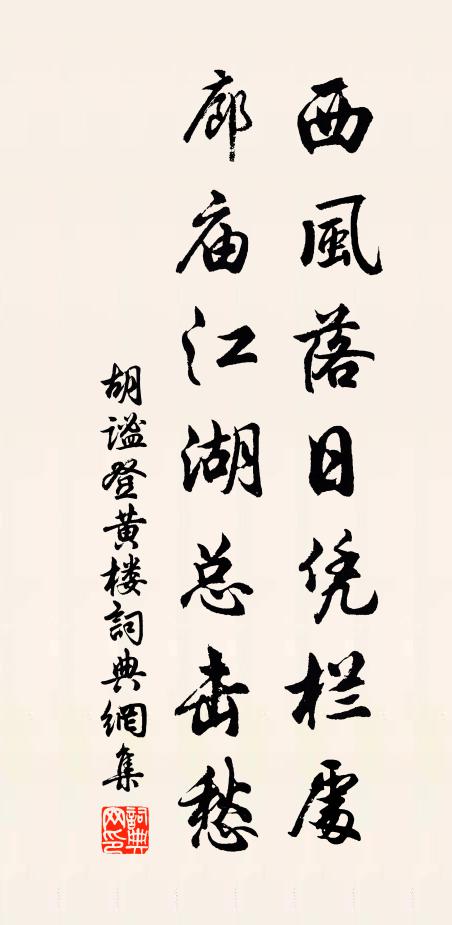 西風落日凭栏處
廊庙江湖总击愁
胡谧登黄楼詞典網集
詞典网印